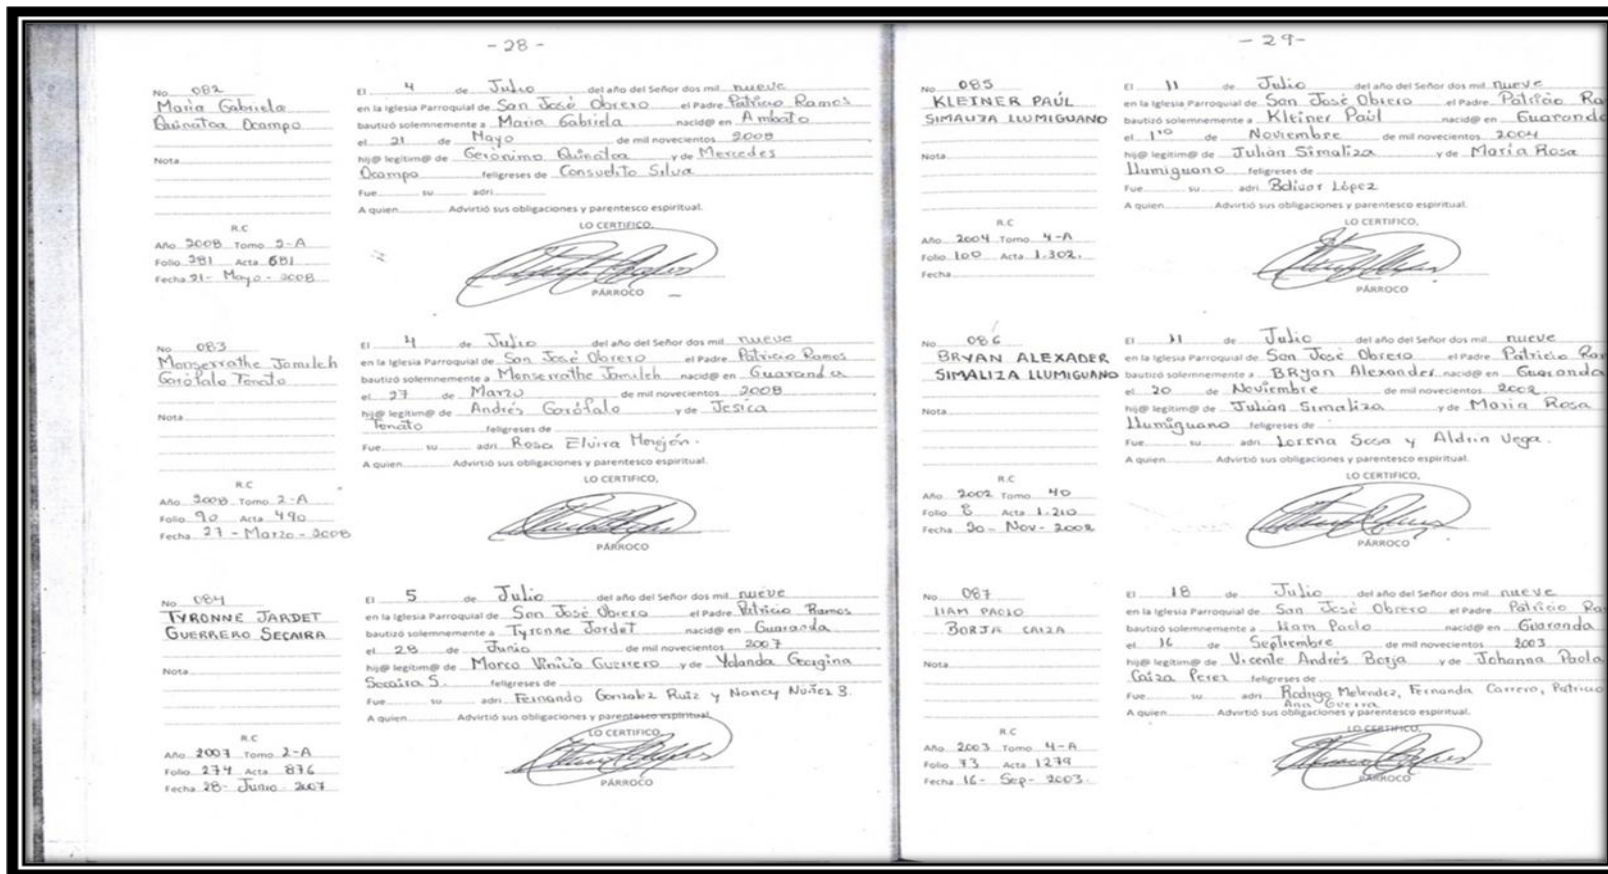 - 28 -
No 082
Maria Gabriela
Quinatoa Ocampo
Nota
R.C
Año 2008 Tomo 2-A
Folio 281 Acta 681
Fecha 21- Mayo - 2008
El 4 de Julio del año del Señor dos mil nueve
en la Iglesia Parroquial de San José Obrero el Padre Patricio Ramos
bautizó solemnemente a Maria Gabriela nacid@ en Ambato
el 21 de Mayo de mil novecientos 2008
hij@ legitim@ de Gerónimo Quinatoa y de Mercedes
Ocampo feligreses de Consuelito Silva
Fue su adri
A quien Advirtió sus obligaciones y parentesco espiritual.
LO CERTIFICO,
PÁRROCO
No 083
Monserrathe Jamileh
Garófalo Tenato
Nota
R.C
Año 2008 Tomo 2-A
Folio 90 Acta 490
Fecha 27 - Marzo - 2008
El 4 de Julio del año del Señor dos mil nueve
en la Iglesia Parroquial de San José Obrero el Padre Patricio Ramos
bautizó solemnemente a Monserrathe Jamileh nacid@ en Guaranda
el 27 de Marzo de mil novecientos 2008
hij@ legitim@ de Andrés Garófalo y de Jesica
Tenato feligreses de
Fue su adri Rosa Elvira Monejón.
A quien Advirtió sus obligaciones y parentesco espiritual.
LO CERTIFICO,
PÁRROCO
No 084
TYRONNE JARDET
GUERRERO SECAIRA
Nota
R.C
Año 2007 Tomo 2-A
Folio 274 Acta 876
Fecha 28- Junio 2007
El 5 de Julio del año del Señor dos mil nueve
en la Iglesia Parroquial de San José Obrero el Padre Patricio Ramos
bautizó solemnemente a Tyronne Jardet nacid@ en Guaranda
el 28 de Junio de mil novecientos 2007
hij@ legitim@ de Marco Vinicio Guerrero y de Yolanda Georgina
Secaira S. feligreses de
Fue su adri Fernando Gonzalez Ruiz y Nancy Nuñez B.
A quien Advirtió sus obligaciones y parentesco espiritual.
LO CERTIFICO,
PÁRROCO
- 29-
No 085
KLEINER PAÚL
SIMALIZA LLUMIGUANO
Nota
R.C
Año 2004 Tomo 4-A
Folio 100 Acta 1.302.
Fecha
El 11 de Julio del año del Señor dos mil nueve
en la Iglesia Parroquial de San José Obrero el Padre Patricio Ra
bautizó solemnemente a Kleiner Paúl nacid@ en Guaranda
el 1ro de Noviembre de mil novecientos 2004
hij@ legitim@ de Julián Simaliza y de María Rosa
Llumiguano feligreses de
Fue su adri Bolívar López
A quien Advirtió sus obligaciones y parentesco espiritual.
LO CERTIFICO,
PÁRROCO
No 086
BRYAN ALEXADER
SIMALIZA LLUMIGUANO
Nota
R.C
Año 2002 Tomo 40
Folio 8 Acta 1.210
Fecha 20- Nov- 2002
El 11 de Julio del año del Señor dos mil nueve
en la Iglesia Parroquial de San José Obrero el Padre Patricio Ra
bautizó solemnemente a BRyan Alexander nacid@ en Guaranda
el 20 de Noviembre de mil novecientos 2002
hij@ legitim@ de Julián Simaliza y de Maria Rosa
Llumiguano feligreses de
Fue su adri Lorena Sosa y Aldrin Vega.
A quien Advirtió sus obligaciones y parentesco espiritual.
LO CERTIFICO,
PÁRROCO
No 087
LIAM PAOLO
BORJA CAIZA
Nota
R.C
Año 2003 Tomo 4-A
Folio 73 Acta 1279
Fecha 16- Sep- 2003.
El 18 de Julio del año del Señor dos mil nueve
en la Iglesia Parroquial de San José Obrero el Padre Patricio Ra
bautizó solemnemente a Liam Paolo nacid@ en Guaranda
el 16 de Septiembre de mil novecientos 2003
hij@ legitim@ de Vicente Andrés Borja y de Johanna Paola
Caiza Perez feligreses de
Fue su adri Rodrigo Melendez, Fernanda Carrero, Patricio
Ana Guerra
A quien Advirtió sus obligaciones y parentesco espiritual.
LO CERTIFICO,
PÁRROCO